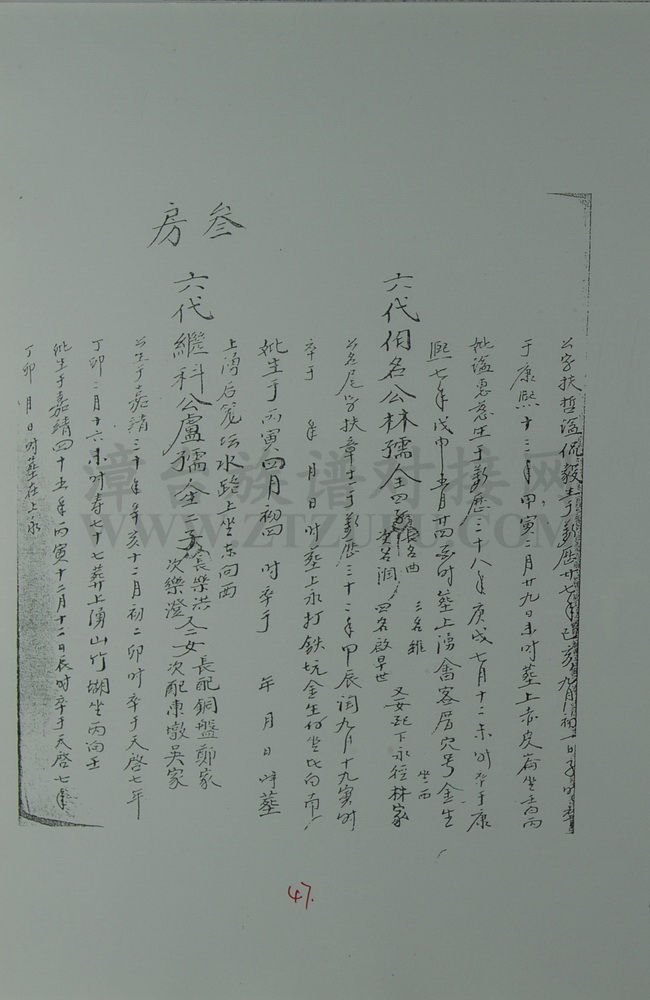 公字扶哲謚侃毅生于萬历廿七年己亥九月初一日子時卒
于康熙十三年甲寅二月廿九日未时墓上赤皮崙坐壬向丙
妣謚惠慈生于萬歷三十八年庚戌七月十二未时卒于康
熙七年戊申五月廿四 时墓上湧會客厝穴号金生
坐西
六代 名公林孺仝四子長名曲 次名润 三名維 四名啟早世 又女配下永徑林家
公名尾字扶章生于萬歷三十二年甲辰闰九月十九寅时
卒于 年 月 日时墓上永打鉄坑金生 坐北向南
妣生于丙寅四月初四 时卒于 年 月 日时墓
上湧后笼坛水路上坐东向西
叁房
六代繼科公盧孺仝子 長樂洪 次樂澄 又二女 長配銅盤鄭家 次配東墩吴家
公生于嘉靖三十年辛亥十二月初二卯时卒于天啓七年
丁卯二月十六未时寿七十七葬上湧山竹湖坐丙向壬
妣生于嘉靖四十五年丙寅十二月十二日辰时卒于天啓七年
丁卯 月 日时墓在上永
漳台族谱对接网
WWW.ZTZUPU.COM
47.